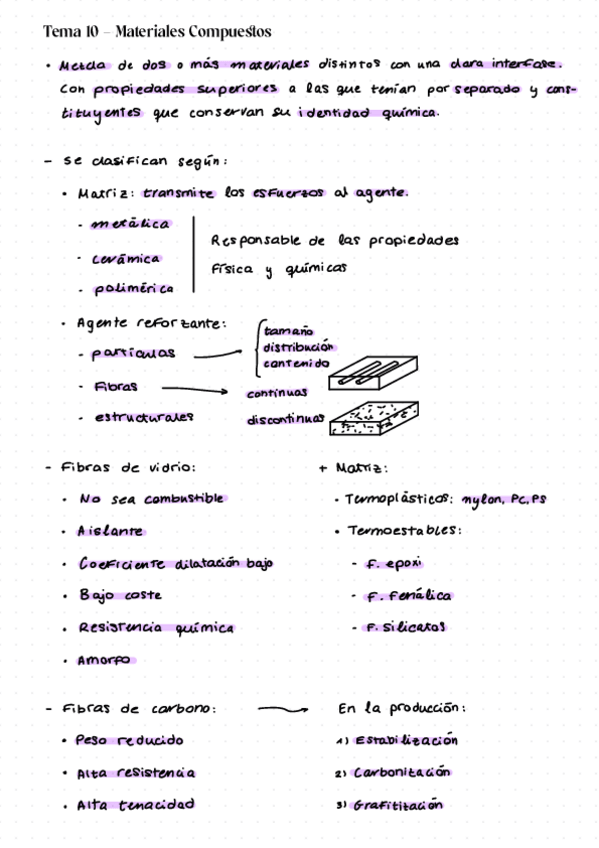 Tema 10 - Materiales Compuestos
• Mezcla de dos o más materiales distintos con una clara interfase.
Con propiedades superiores a las que tenían por separado y cons-
tituyentes que conservan su identidad química.
- Se clasifican según:
• Matriz: transmite los esfuerzos al agente.
- metálica
- cerámica
- polimérica
Responsable de las propiedades
física y químicas
• Agente reforzante:
- partículas
tamaño
distribución
contenido
- Fibras
continuas
discontinuas
- estructurales
- Fibras de vidrio:
• No sea combustible
• Aislante
• Coeficiente dilatación bajo
• Bajo coste
• Resistencia química
• Amorfo
+ Matriz:
• Termoplásticos: nylon, PC, PS
• Termoestables:
- F. epoxi
- F. Fenólica
- F. silicatos
- Fibras de carbono:
• Peso reducido
• Alta resistencia
• Alta tenacidad
En la producción:
1) Estabilización
2) Carbonización
3) Grafitización